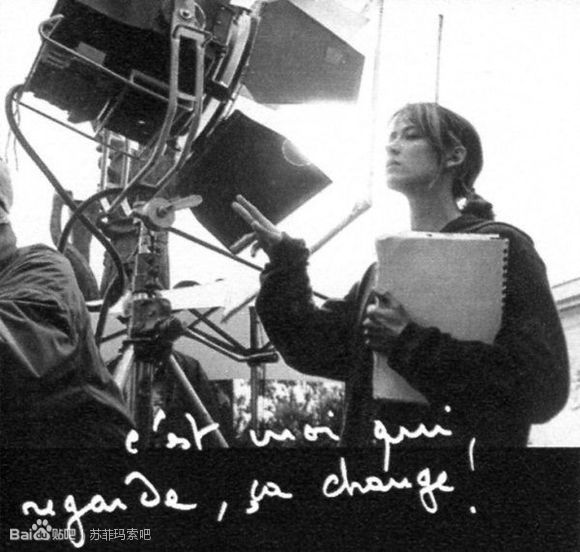 c'est moi qui
regarde, ça change!
Bai贴吧 苏菲玛索吧